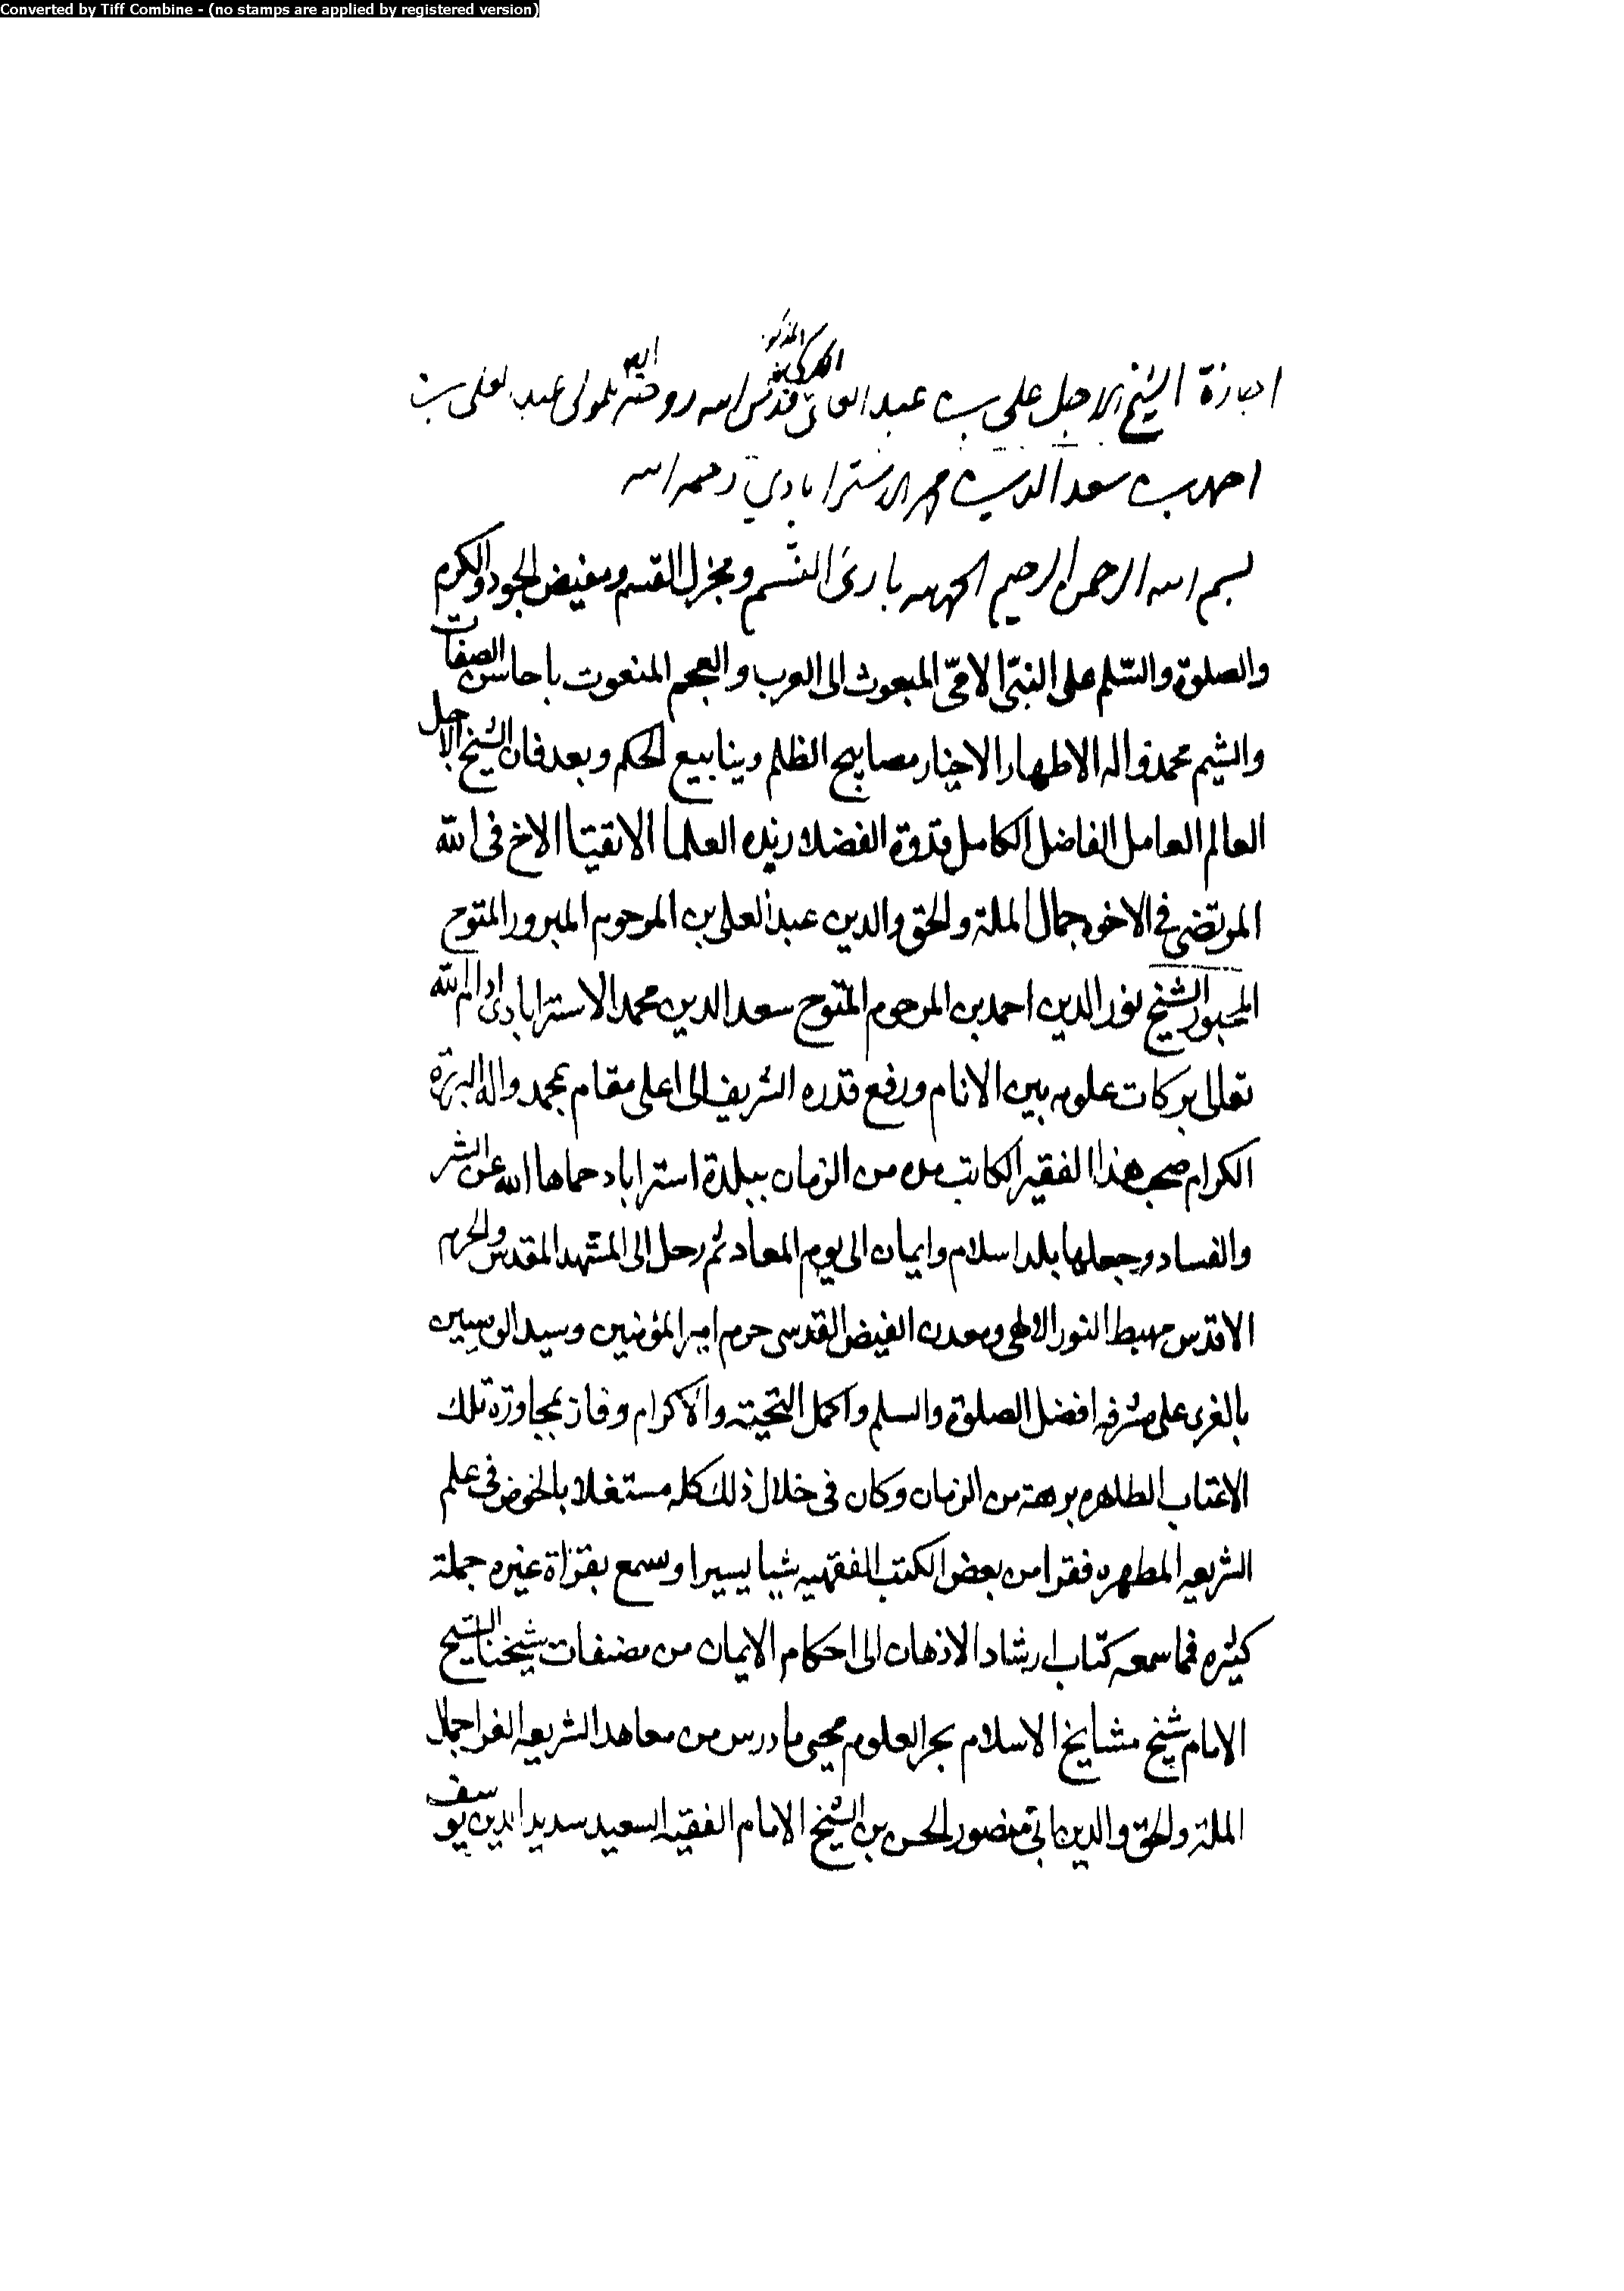 Converted by Tiff Combine - (no stamps are applied by registered version)
اجازة الشيخ الاجل علي بن عبد العالي الكركي قدس الله روحه للمولى عبد العلي بن
احمد بن سعد الدين محمد الاسترابادي رحمه الله
بسم الله الرحمن الرحيم الحمد لله بارئ النسم ومجزل القسم ومفيض الجود والكرم
والصلوة والسّلم على النبىّ الامىّ المبعوث الى العرب والعجم المنعوت باحاسن الصفات
والشيم محمد واله الاطهار الاخيار مصابيح الظلم وينابيع الحكم وبعد فان الشيخ الاجل
العالم العامل الفاضل الكامل قدوة الفضلا زبده العلما الاتقيا الاخ فى الله
المرتضى فى الاخوه جمال الملة والحق والدين عبد العلى بن المرحوم المبرور المتوج
المحبور الشيخ نور الدين احمد بن المرحوم المتوج سعد الدين محمد الاسترابادى ادام الله
تعالى بركات علومه بين الانام ورفع قدره الشريف الى اعلى مقام بمحمد واله البررة
الكرام صحب هذا الفقير الكاتب مده من الزمان ببلدة استراباد حماها الله عن الشر
والفساد وجعلها بلد اسلام وايمان الى يوم المعاد ثم رحل الى المشهد المقدس والحرم
الاقدس مهبط النور الالهى ومعدن الفيض القدسى حرم امير المؤمنين وسيد الوصيين
بالغرى على مشرفه افضل الصلوة والسلم واكمل التحية والاكرام وفاز بمجاورة تلك
الاعتاب الطاهره برهة من الزمان وكان فى خلال ذلك كله مشتغلا بالخوض فى علم
الشريعه المطهره فقرا من بعض الكتب الفقهيه شيا يسيرا وسمع بقراة غيره جملة
كثيره فما سمعه كتاب ارشاد الاذهان الى احكام الايمان من مصنفات شيخنا الشيخ
الامام شيخ مشايخ الاسلام بحر العلوم محيى ما درس من معاهد الشريعه الغرا جمال
الملة والحق والدين ابى منصور الحسن بن الشيخ الامام الفقيه السعيد سديد الدين يوسف